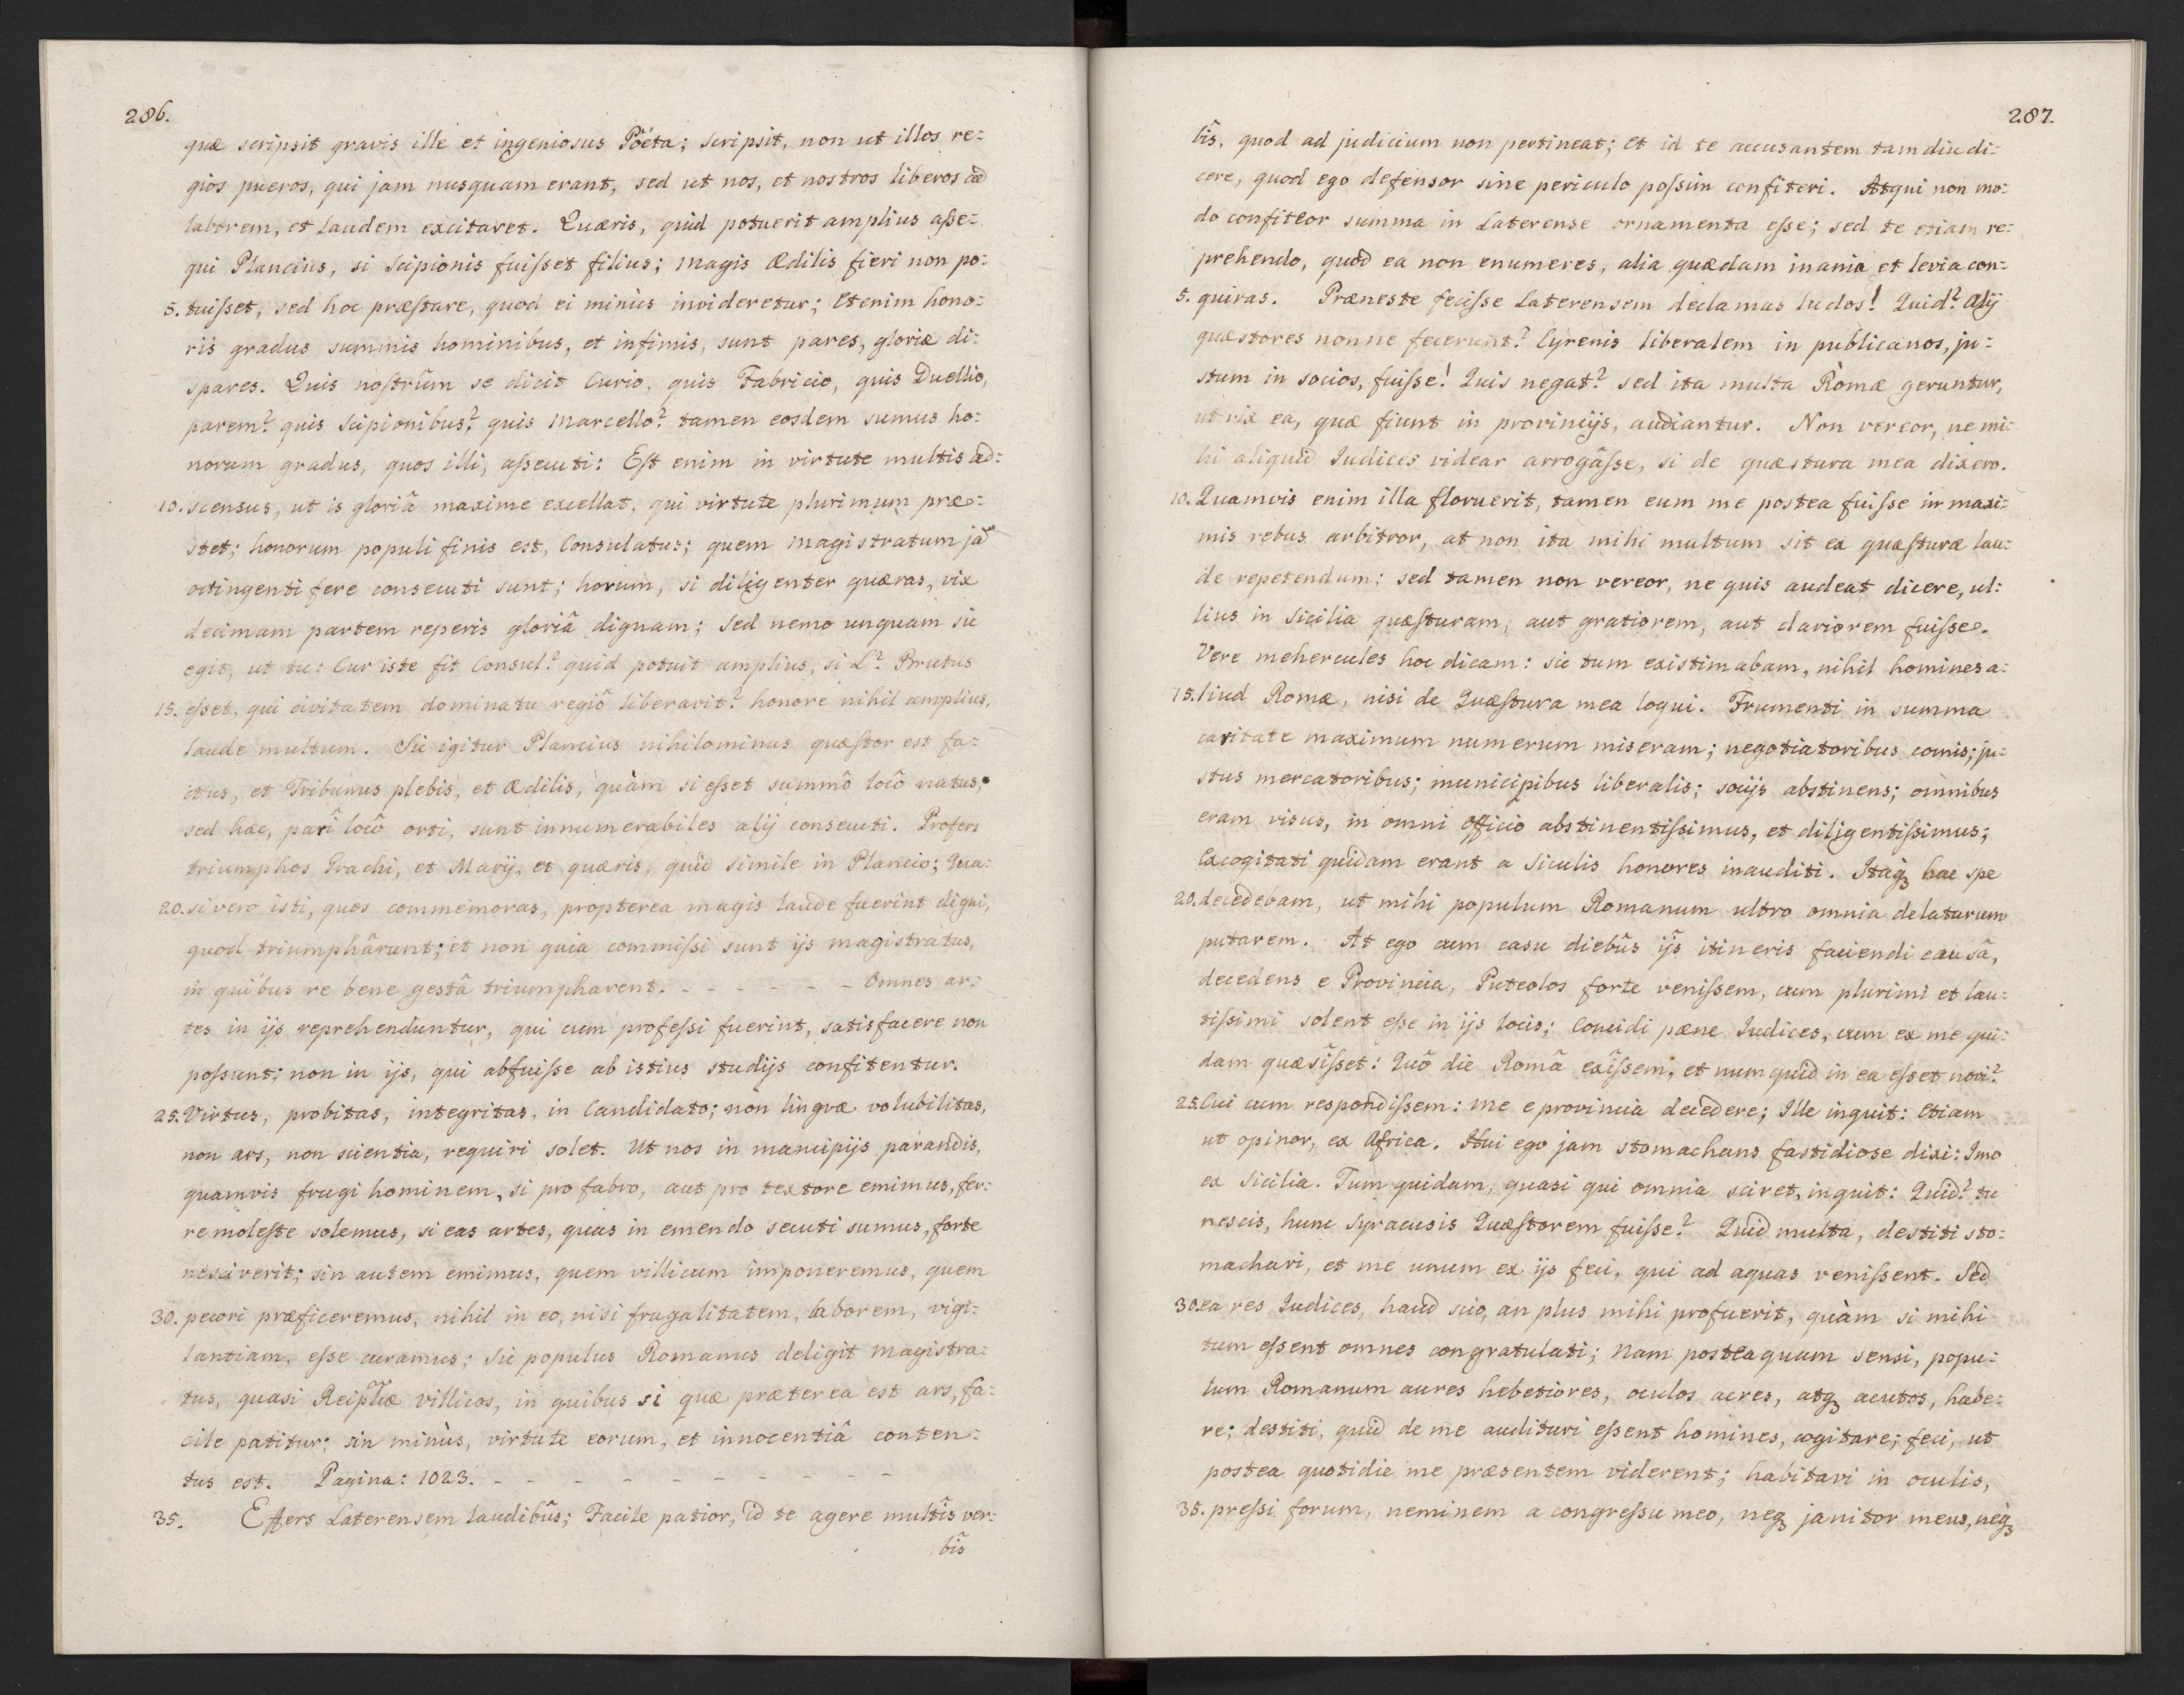 286.
quæ scripsit gravis ille et ingeniosus Poéta; scripsit, non ut illos re:
gios pueros, qui jam nusquam erant, sed ut nos, et nostros liberos ad
laborem, et laudem excitaret. Quæris, quid potuerit amplius aſse:
qui Plancius, si Scipionis fuiſset filius; magis Ædilis fieri non po:
5. tuiſset, sed hoc præſtare, quod ei minùs invideretur; Etenim hono:
ris gradus summis hominibus, et infimis, sunt pares, gloriæ di:
spares. Quis noſtrûm se dicit Curio, quis Fabricio, quis Duellio,
parem? quis Scipionibus? quis Marcello? tamen eosdem sumus ho:
norum gradus, quos illi, aſsecuti: Eſt enim in virtute multis ad:
10. scensus, ut is gloriâ maxime excellat, qui virtute plurimum præ:
stet; honorum populi finis est, Consulatus; quem magistratum jã
octingenti fere consecuti sunt; horum, si diligenter quæras, vix
decimam partem reperis gloriâ dignam; Sed nemo unquam sic
egit, ut tu: Cur iste fit Consul? quid potuit amplius, si L? Brutus
15. eſset, qui civitatem dominatu regiô liberavit? honore nihil amplius,
laude multum. Sic igitur Plancius nihilominus quæſtor est fa:
ctus, et Tribunus plebis, et Ædilis, quàm si eſset summô locô natus;
sed hæc, parî locô orti, sunt innumerabiles alij consecuti. Profers
triumphos Grachi, et Marij, et quæris, quid simile in Plancio; Qua:
20. si vero isti, quos commemoras, propterea magis laude fuerint digni,
quod triumphârunt; et non quia commiſsi sunt ijs magistratus,
in quibus re bene gestâ triumpharent. - - - - - - Omnes ar:
tes in ijs reprehenduntur, qui cum profeſsi fuerint, satisfacere non
poſsunt; non in ijs, qui abfuiſse ab istius studijs confitentur.
25. Virtus, probitas, integritas, in Candidato; non lingvæ volubilitas,
non ars, non scientia, requiri solet. Ut nos in mancipijs parandis,
quamvis frugi hominem, si pro fabro, aut pro textore emimus, fer:
re moleſte solemus, si eas artes, quas in emendo secuti sumus, forte
nesciverit; sin autem emimus, quem villicum imponeremus, quem
30. pecori præficeremus, nihil in eo, nisi frugalitatem, laborem, vigi:
lantiam, eſse curamus; Sic populus Romanus deligit magistra:
tus, quasi Reiplcæ villicos, in quibus si quæ præterea est ars, fa:
cile patitur; sin minùs, virtute eorum, et innocentiâ conten:
tus est. Pagina: 1023. - - - - - - - - -
35. Effers Laterensem laudibûs; Facile patior, id te agere multîs ver:
bîs
287.
bîs, quod ad judicium non pertineat; Et id te accusantem tam diu di:
cere, quod ego defensor sine periculo poſsim confiteri. Atqui non mo:
do confiteor summa in Laterense ornamenta eſse; sed te etiam re:
prehendo, quòd ea non enumeres, alia quædam inania et levia con:
5. quiras. Præneste feciſse Laterensem declamas ludos! Quid? Alij
quæstores nonne fecerunt? Cyrenis liberalem in publicanos, ju:
stum in socios, fuiſse! Quis negat? sed ita multa Romæ geruntur,
ut vix ea, quæ fiunt in provincijs, audiantur. Non vereor, ne mi:
hi aliquid Judices videar arrogâſse, si de quæstura mea dixero.
10. Quamvis enim illa floruerit, tamen eum me postea fuiſse in maxi:
mis rebus arbitror, at non ita mihi multum sit ex quæſturæ lau:
de repetendum; sed tamen non vereor, ne quis audeat dicere, ul:
lius in Sicilia quæſturam, aut gratiorem, aut clariorem fuiſse.
Vere mehercules hoc dicam: sic tum existimabam, nihil homines a:
15. liud Romæ, nisi de Quæſtura mea loqui. Frumenti in summa
caritate maximum numerum miseram; negotiatoribus comis; ju:
stus mercatoribus; municipibus liberalis; socijs abstinens; omnibus
eram visus, in omni officio abstinentiſsimus, et diligentiſsimus;
Excogitati quidam erant a Siculis honores inauditi. Itaq3 hac spe
20. decedebam, ut mihi populum Romanum ultro omnia delaturum
putarem. At ego cum casu diebûs ijs itineris faciendi causâ,
decedens e Provincia, Puteolos forte veniſsem, cum plurimi et lau:
tiſsimi solent eſse in ijs locis; Concidi pæne Judices, cum ex me qui:
dam quæsîſset: Quô die Româ exîſsem, et numquid in ea eſset novi?
25. Cui cum respondiſsem: me e provincia decedere; Ille inquit: Etiam
ut opinor, ex Africa. Hui ego jam stomachans fastidiose dixi: Imo
ex Sicilia. Tum quidam, quasi qui omnia sciret, inquit: Quid? tu
nescis, hunc Syracusis Quæſtorem fuiſse? Quid multa, destiti sto:
machari, et me unum ex ijs feci, qui ad aquas veniſsent. Sed
30. ea res Judices, haud scio, an plus mihi profuerit, quàm si mihi
tum eſsent omnes congratulati; Nam posteaquam sensi, popu:
lum Romanum aures hebetiores, oculos acres, atq3 acutos, habe:
re; destiti, quid de me audituri eſsent homines, cogitare; feci, ut
postea quotidie me præsentem viderent; habitavi in oculis,
35. preſsi forum, neminem a congreſsu meo, neq3 janitor meus, neq3